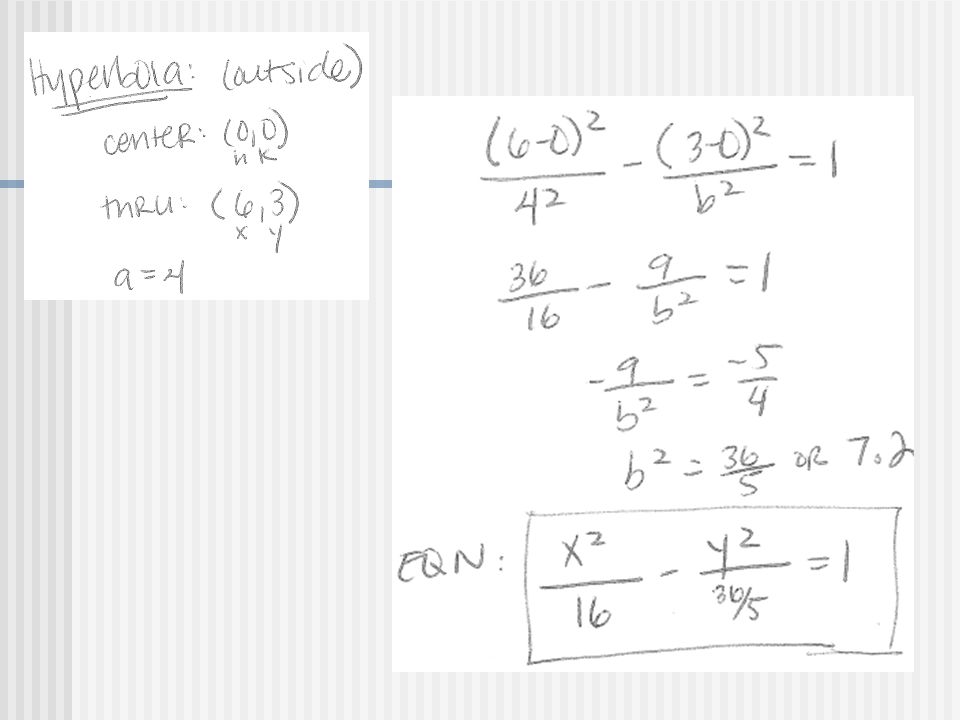 Hyperbola: (outside)
center: (0,0)
h k
thru: (6,3)
x y
a=4
(6-0)²/4² - (3-0)²/b² = 1
36/16 - 9/b² = 1
-9/b² = -5/4
b² = 36/5 OR 7.2
EQN: x²/16 - y²/36/5 = 1